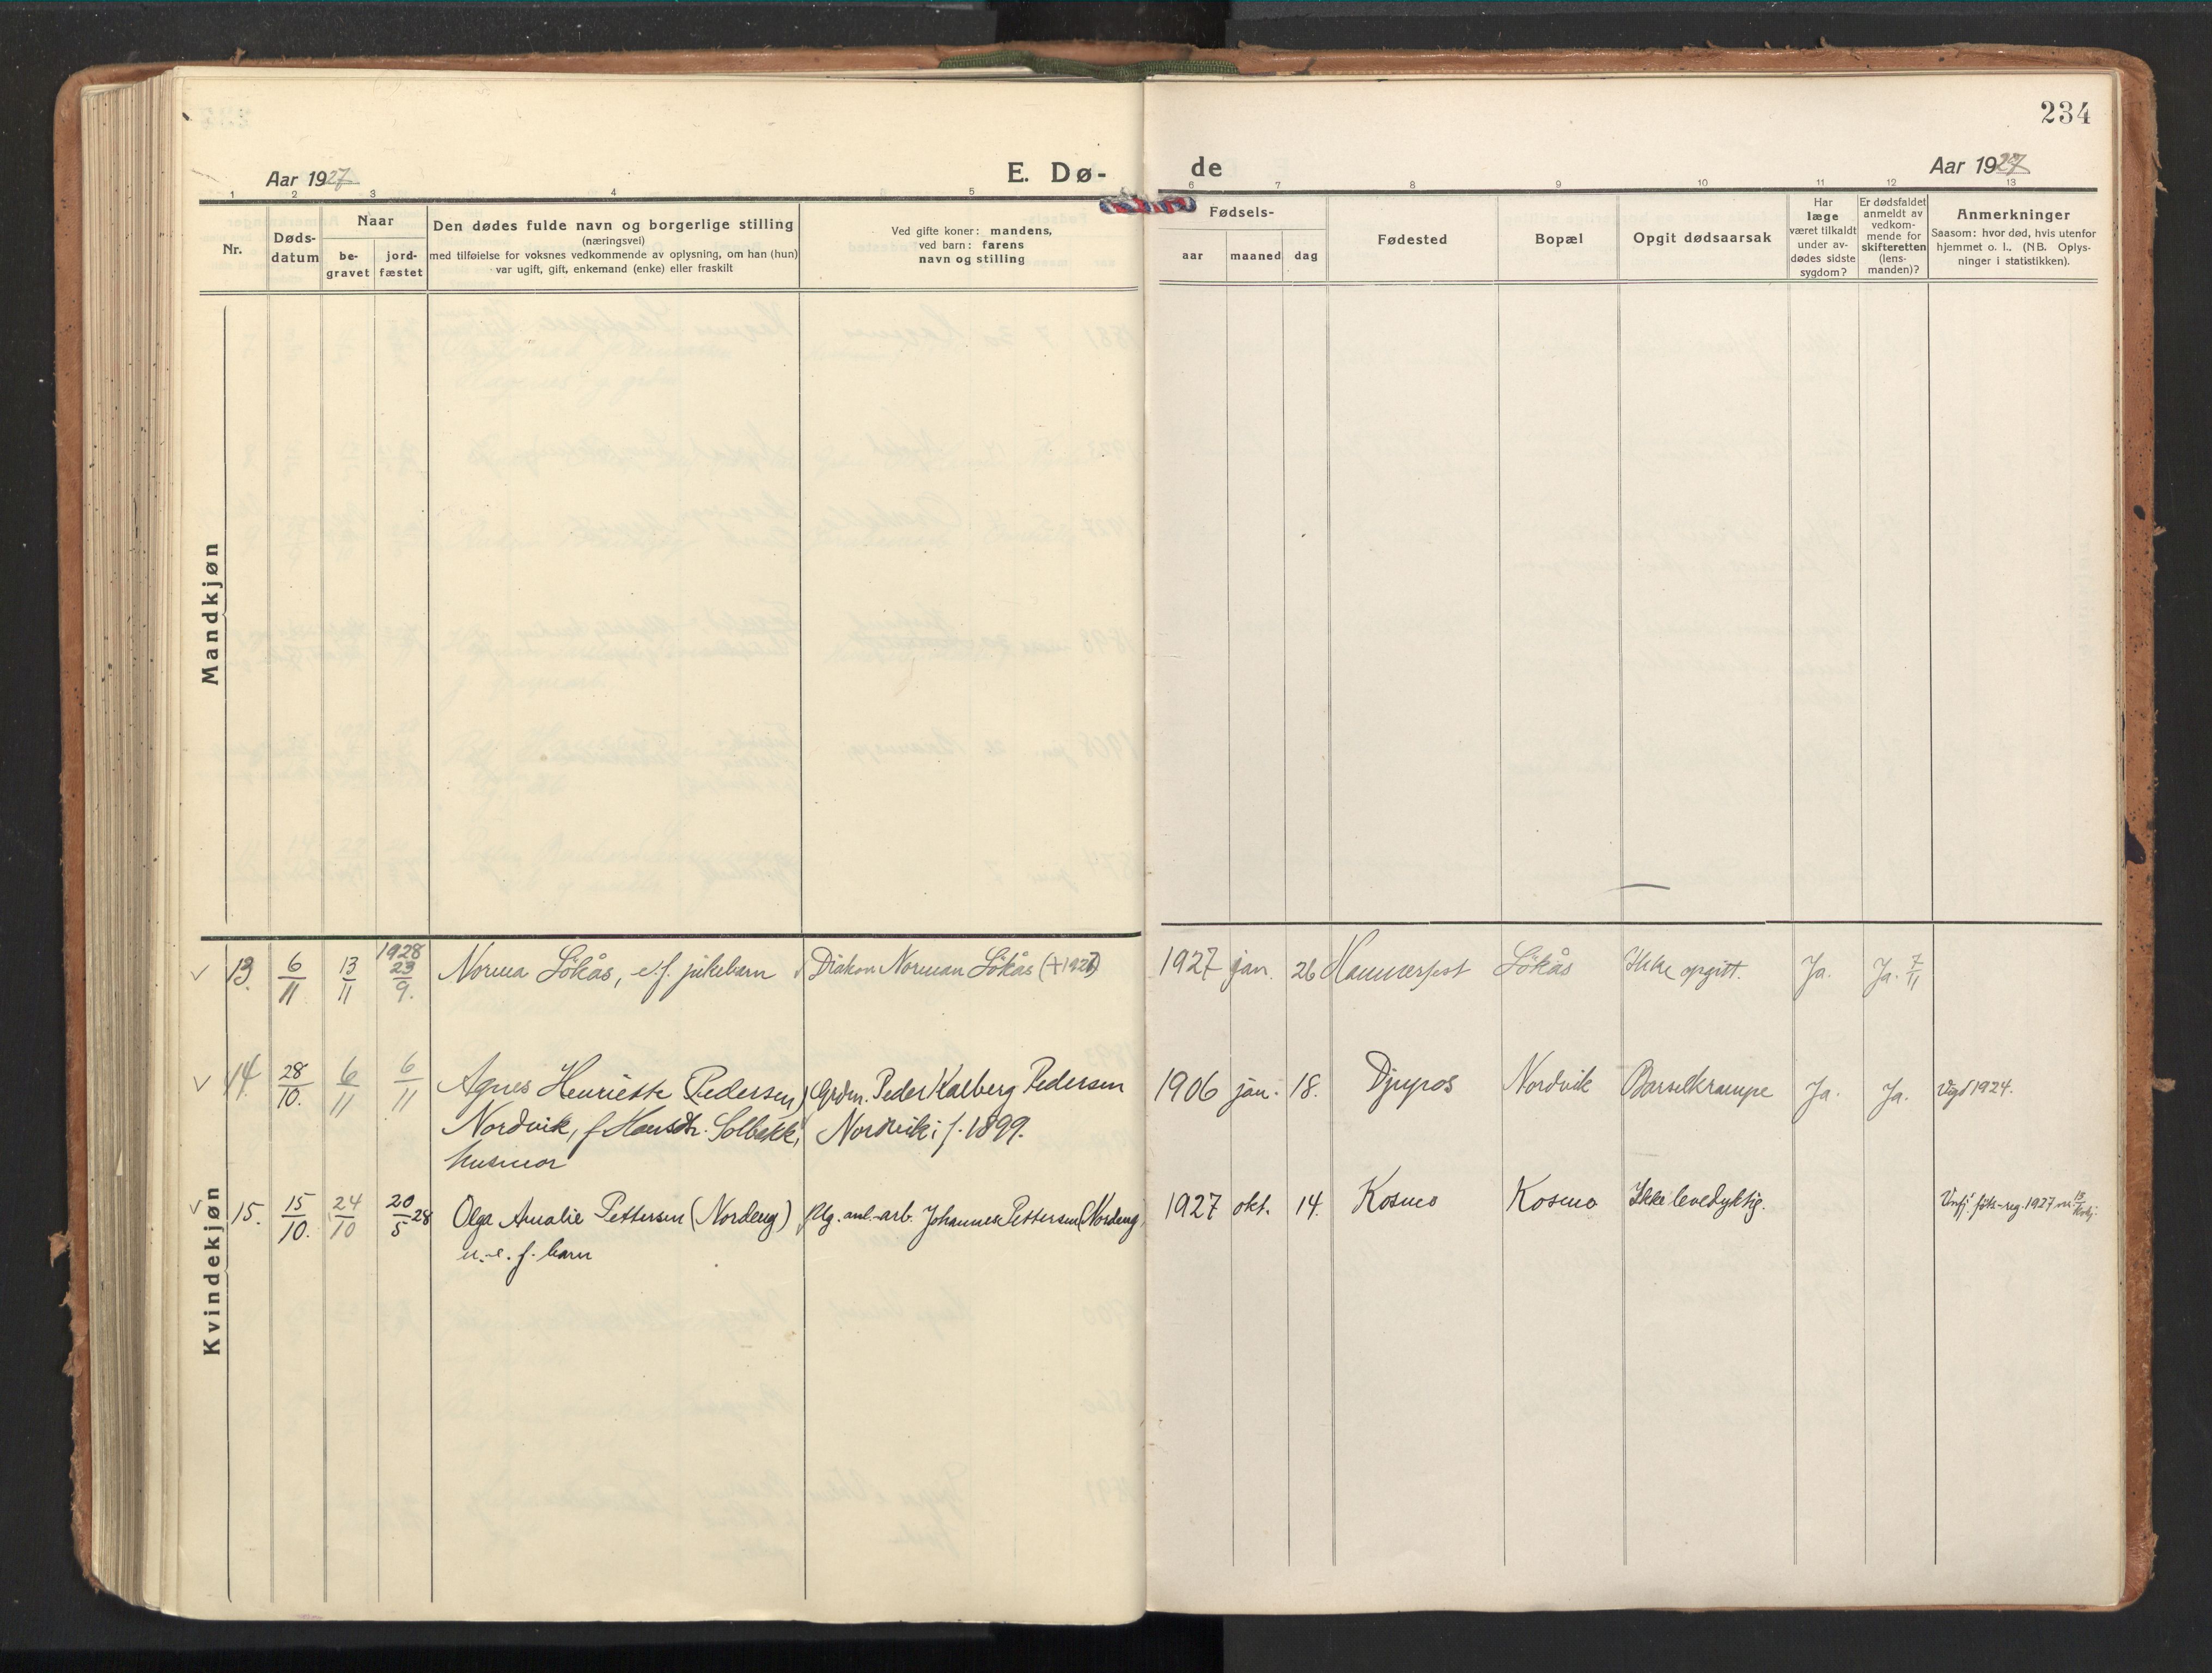 234
Aar 1927
E. Dø-
de
Aar 1927
1 2 3 4 5 6 7 8 9 10 11 12 13
Nr.
Døds-
datum
Naar
be-
gravet
jord-
fæstet
Den dødes fulde navn og borgerlige stilling
(næringsvei)
med tilføielse for voksnes vedkommende av oplysning, om han (hun)
var ugift, gift, enkemand (enke) eller fraskilt
Ved gifte koner: mandens,
ved barn: farens
navn og stilling
Fødsels-
aar maaned dag
Fødested
Bopæl
Opgit dødsaarsak
Har
læge
været tilkaldt
under av-
dødes sidste
sygdom?
Er dødsfaldet
anmeldt av
vedkom-
mende for
skifteretten
(lens-
manden)?
Anmerkninger
Saasom: hvor død, hvis utenfor
hjemmet o. l., (NB. Oplys-
ninger i statistikken).
Mandkjøn
Kvindekjøn
13. 6/11 13/11 1928 23/9. Norma Lökås, e.f. pikebarn Diakon Norman Lökås (+1927) 1927 jan. 26 Hammerfest Lökås Ikke opgitt. Ja. Ja. 7/11
14. 28/10. 6/11 6/11 Agnes Henriette (Pedersen) Grdm. Peder Kalberg Pedersen 1906 jan. 18. Djupos Nordvik Barselkrampe Ja. Ja. Vigd 1924.
Nordvik, f. Hansdtr. Solbakk, Nordvik; f. 1899.
husmor
15. 15/10. 24/10 20/5 28 Olga Amalie Pettersen (Nordeng) anl.-arb. Johannes Pettersen (Nordeng) 1927 okt. 14. Kosmo Kosmo Ikke levedyktig. föds-reg. 1927 nr 13
u.-e. f. barn